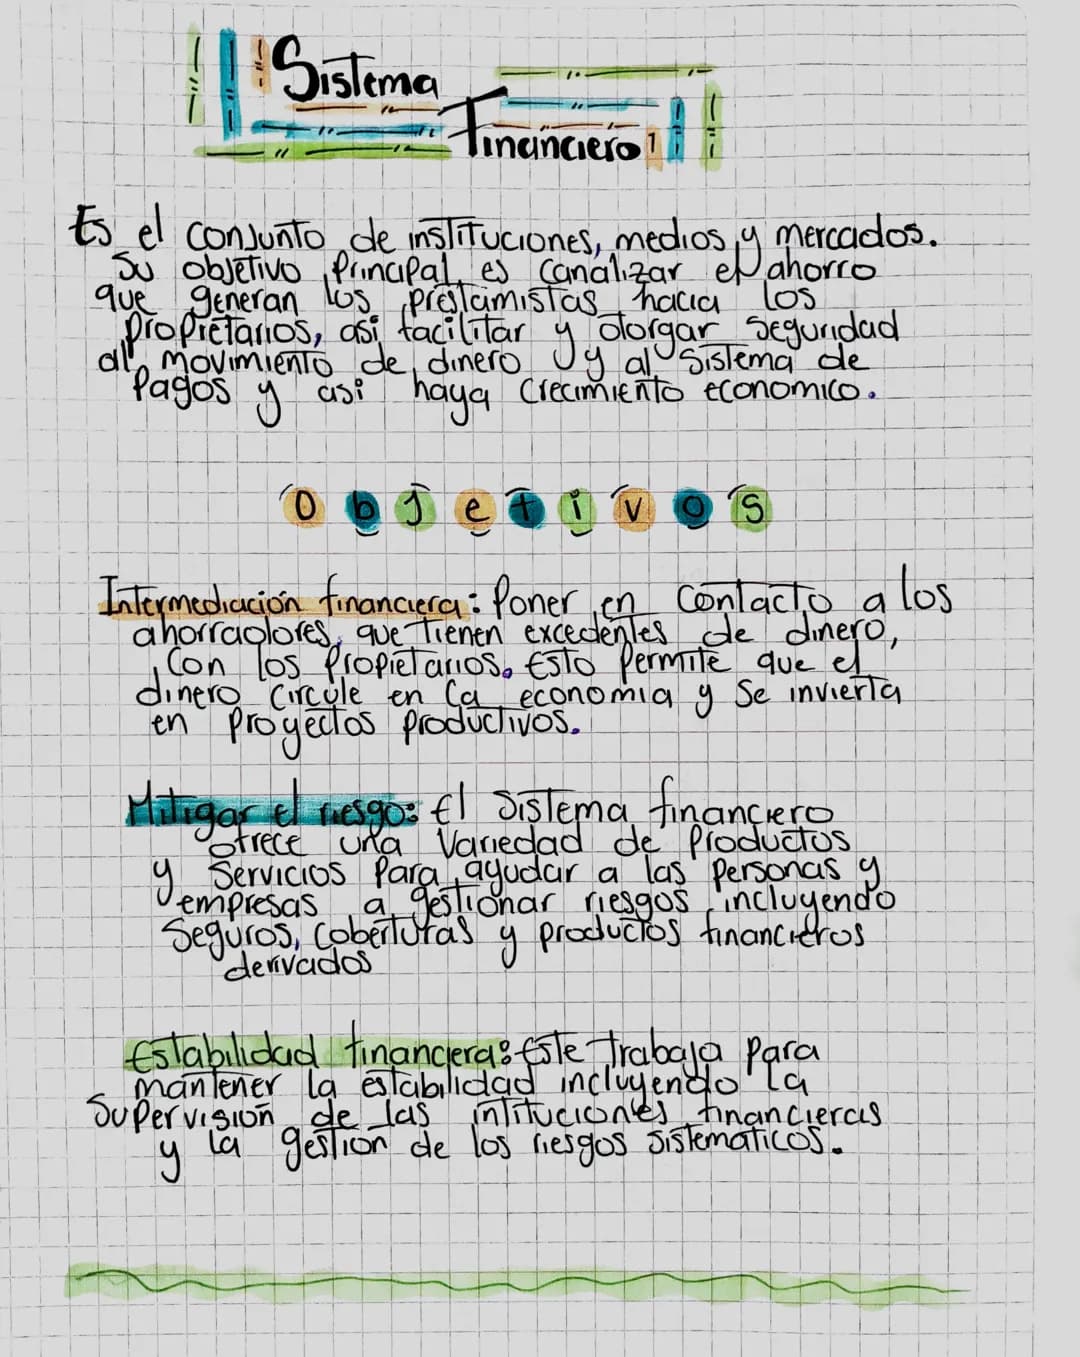 Sistema
Financiero
Es el conjunto de instituciones, medios y mercados.
Su objetivo Principal es canalizar el ahorro
que generan los prestamistas hacia los
propietarios, asi facilitar y otorgar seguridad
al movimiento de dinero y al Sistema de
Pagos y asi haya Crecimiento economico.
Objetivos
Intermediación financiera: Poner en Contacto a los
ahorradores, que tienen excedentes de dinero,
Con los Propietarios. Esto Permite que el
dinero Circule en la economia y Se invierta
en Proyectos productivos.
Mitigar el riesgo: El Sistema financiero
ofrece una Variedad de Productos
y Servicios Para ayudar a las Personas y
empresas a gestionar riesgos incluyendo
Seguros, Coberturas y productos financieros
derivados
Estabilidad financiera: Este trabaja Para
mantener la estabilidad incluyendo la
Supervisión de las intituciones financieras
y la gestion de los riesgos sistematicos.